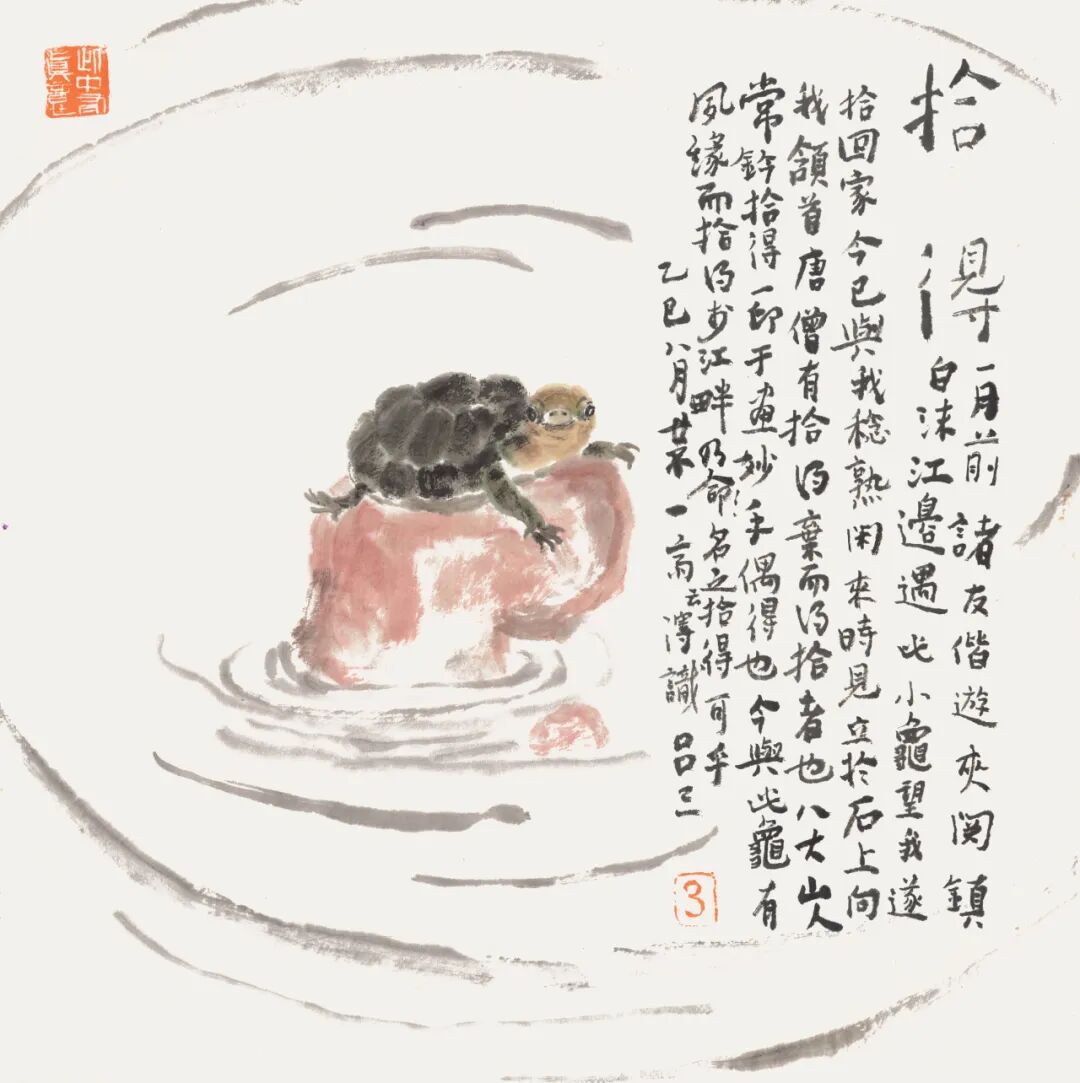 拾得
一月前諸友偕遊夾関鎮
白沫江邊遇此小龜望我遂
拾回家今已與我稔熟閑來時見立於石上向
我頷首唐僧有拾得棄而得拾者也八大山人
常鈐拾得一印于畫妙手偶得也今與此龜有
夙緣而拾得於江畔乃命名之拾得可乎
乙巳八月廿不一齋 識呂三
此中有真意
3